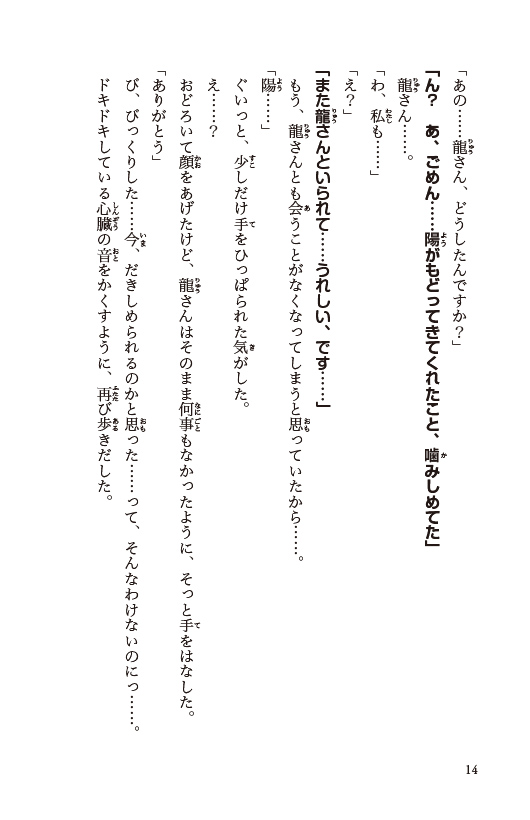 「あの……龍さん、どうしたんですか？」
「ん？　あ、ごめん……陽がもどってきてくれたこと、噛みしめてた」
龍さん……。
「わ、私も……」
「え？」
「また龍さんといられて……うれしい、です……」
もう、龍さんとも会うことがなくなってしまうと思っていたから……。
「陽……」
ぐいっと、少しだけ手をひっぱられた気がした。
え……？
おどろいて顔をあげたけど、龍さんはそのまま何事もなかったように、そっと手をはなした。
「ありがとう」
び、びっくりした……今、だきしめられるのかと思った……って、そんなわけないのにっ……。
ドキドキしている心臓の音をかくすように、再び歩きだした。
14